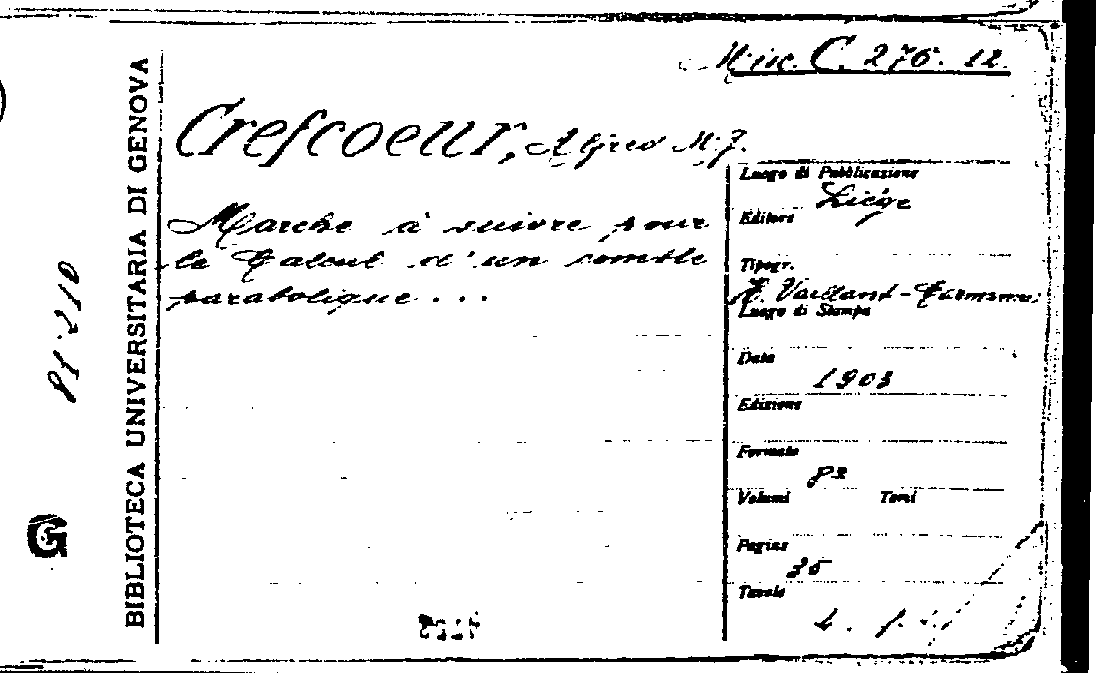 Misc. C. 276. 12.
Crefcoeur, Alfred M. J.
Marche à suivre pour
le Calcul d'un comble
parabolique . . .
Luogo di Pubblicazione
Liége
Editore
Tipogr.
H. Vaillant-Carmanne
Luogo di Stampa
Data
1903
Edizione
Formato
8º
Volumi Tomi
Pagine
35
Tavole
BIBLIOTECA UNIVERSITARIA DI GENOVA
G